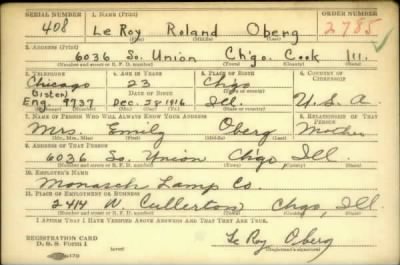 SERIAL NUMBER 1. NAME (Print) ORDER NUMBER
408 Le Roy Roland Oberg 2785
(First) (Middle) (Last)
2. ADDRESS (Print)
6036 So. Union Ch'go. Cook Ill.
(Number and street or R. F. D. number) (Town) (County) (State)
3. TELEPHONE 4. AGE IN YEARS 5. PLACE OF BIRTH 6. COUNTRY OF CITIZENSHIP
Chicago 23 Chgo
DATE OF BIRTH
Eng. 9737 Dec. 28 1916 Ill. U.S.A.
(Exchange) (Number) (Mo.) (Day) (Yr.) (State or country)
7. NAME OF PERSON WHO WILL ALWAYS KNOW YOUR ADDRESS 8. RELATIONSHIP OF THAT PERSON
Mrs. Emily Oberg Mother
(Mr., Mrs., Miss) (First) (Middle) (Last)
9. ADDRESS OF THAT PERSON
6036 So. Union Chgo Ill.
(Number and street or R. F. D. number) (Town) (County) (State)
10. EMPLOYER'S NAME
Monarch Lamp Co.
11. PLACE OF EMPLOYMENT OR BUSINESS
2414 W. Cullerton Chgo, Ill.
(Number and street or R. F. D. number) (Town) (County) (State)
I AFFIRM THAT I HAVE VERIFIED ABOVE ANSWERS AND THAT THEY ARE TRUE.
REGISTRATION CARD
D. S. S. Form 1 Le Roy Oberg
(over)